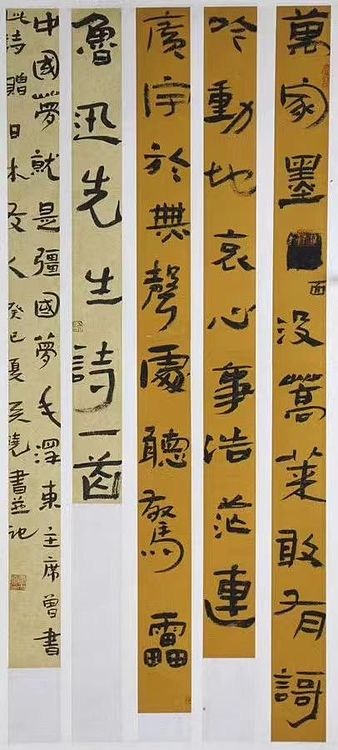 萬家墨面沒蒿萊敢有謌
吟動地哀心事浩茫連
廣宇於無聲處聽驚靁
魯迅先生詩一首
中國夢就是彊國夢毛澤東主席曾書
此詩贈日本友人癸巳夏曉書並記